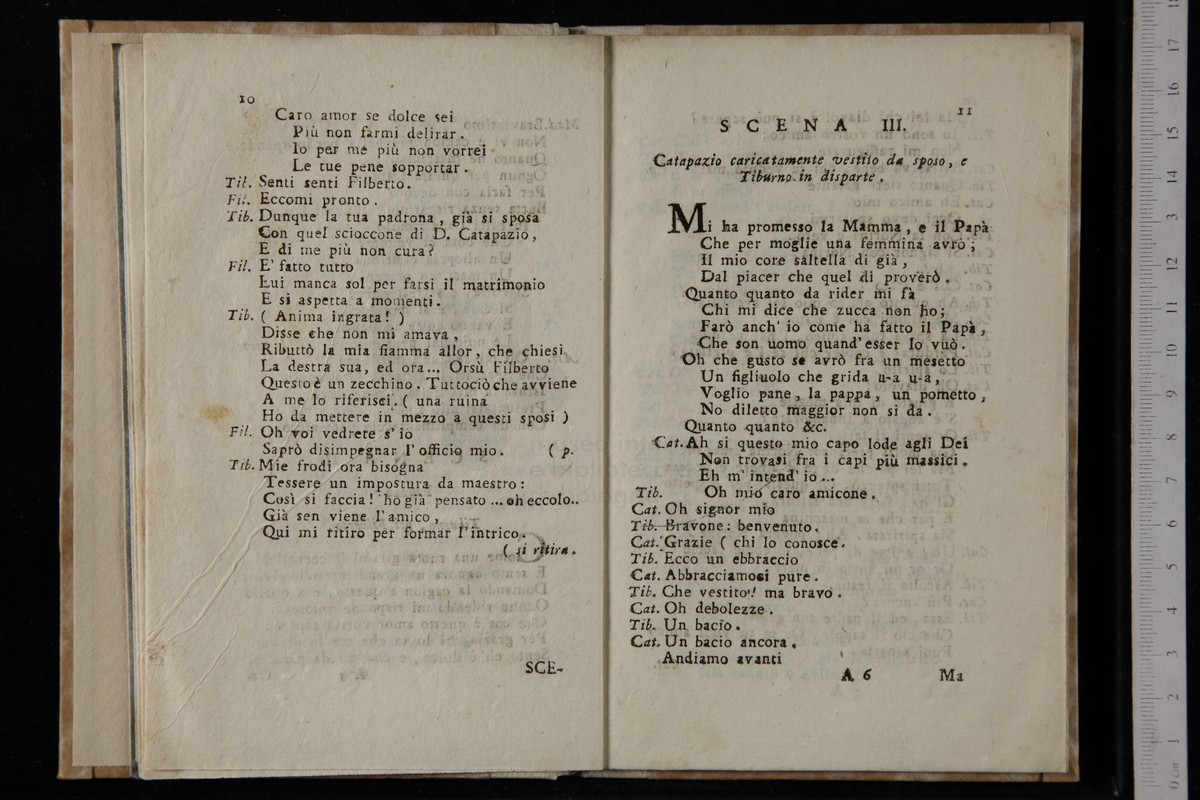 10
Caro amor se dolce sei
Più non farmi delirar.
Io per me più non vorrei
Le tue pene sopportar.
Til. Senti senti Filberto.
Fil. Eccomi pronto.
Tib. Dunque la tua padrona, già si sposa
Con quel scioccone di D. Catapazio,
E di me più non cura?
Fil. E' fatto tutto
Lui manca sol per farsi il matrimonio
E si aspetta a momenti.
Tib. ( Anima ingrata! )
Disse che non mi amava,
Ributtò la mia fiamma allor, che chiesi
La destra sua, ed ora... Orsù Filberto
Questo è un zecchino. Tuttociò che avviene
A me lo riferisci. ( una ruina
Ho da mettere in mezzo a questi sposi )
Fil. Oh voi vedrete s' io
Saprò disimpegnar l' officio mio. ( p.
Tib. Mie frodi ora bisogna
Tessere un impostura da maestro:
Così si faccia! ho già pensato ... oh eccolo..
Già sen viene l'amico,
Qui mi ritiro per formar l' intrico.
( si ritira.
SCE-
11
SCENA III.
Catapazio caricatamente vestito da sposo, e
Tiburno in disparte.
Mi ha promesso la Mamma, e il Papà
Che per moglie una femmina avrò;
Il mio core saltella di già,
Dal piacer che quel dì proverò.
Quanto quanto da rider mi fà
Chi mi dice che zucca non ho;
Farò anch' io come ha fatto il Papà,
Che son uomo quand' esser lo vuò.
Oh che gusto se avrò fra un mesetto
Un figliuolo che grida u-a u-a,
Voglio pane, la pappa, un pometto,
No diletto maggior non si da.
Quanto quanto &c.
Cat. Ah si questo mio capo lode agli Dei
Non trovasi fra i capi più massici.
Eh m' intend' io...
Tib. Oh mio caro amicone.
Cat. Oh signor mio
Tib. Bravone: benvenuto.
Cat. Grazie ( chi lo conosce.
Tib. Ecco un ebbraccio
Cat. Abbracciamosi pure.
Tib. Che vestito! ma bravo.
Cat. Oh debolezze.
Tib. Un bacio.
Cat. Un bacio ancora,
Andiamo avanti
A 6 Ma